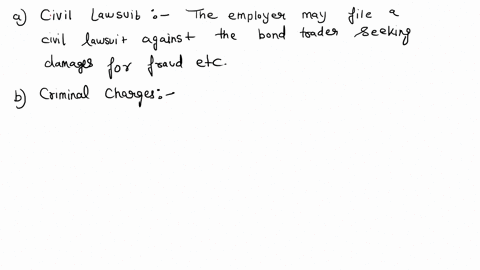 a) Civil Lawsuit :- The employer may file a
civil lawsuit against the bond trader seeking
damages for fraud etc.
b) Criminal Charges:-